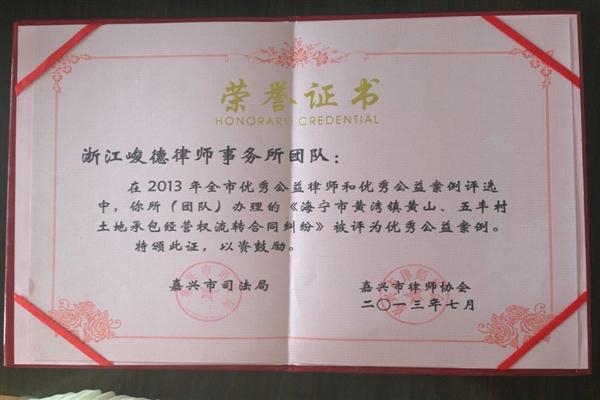 荣誉证书
HONORARY CREDENTIAL
浙江峻德律师事务所团队：
在2013年全市优秀公益律师和优秀公益案例评选
中，你所（团队）办理的《海宁市黄湾镇黄山、五丰村
土地承包经营权流转合同纠纷》被评为优秀公益案例。
特颁此证，以资鼓励。
嘉兴市司法局
嘉兴市律师协会
二〇一三年七月